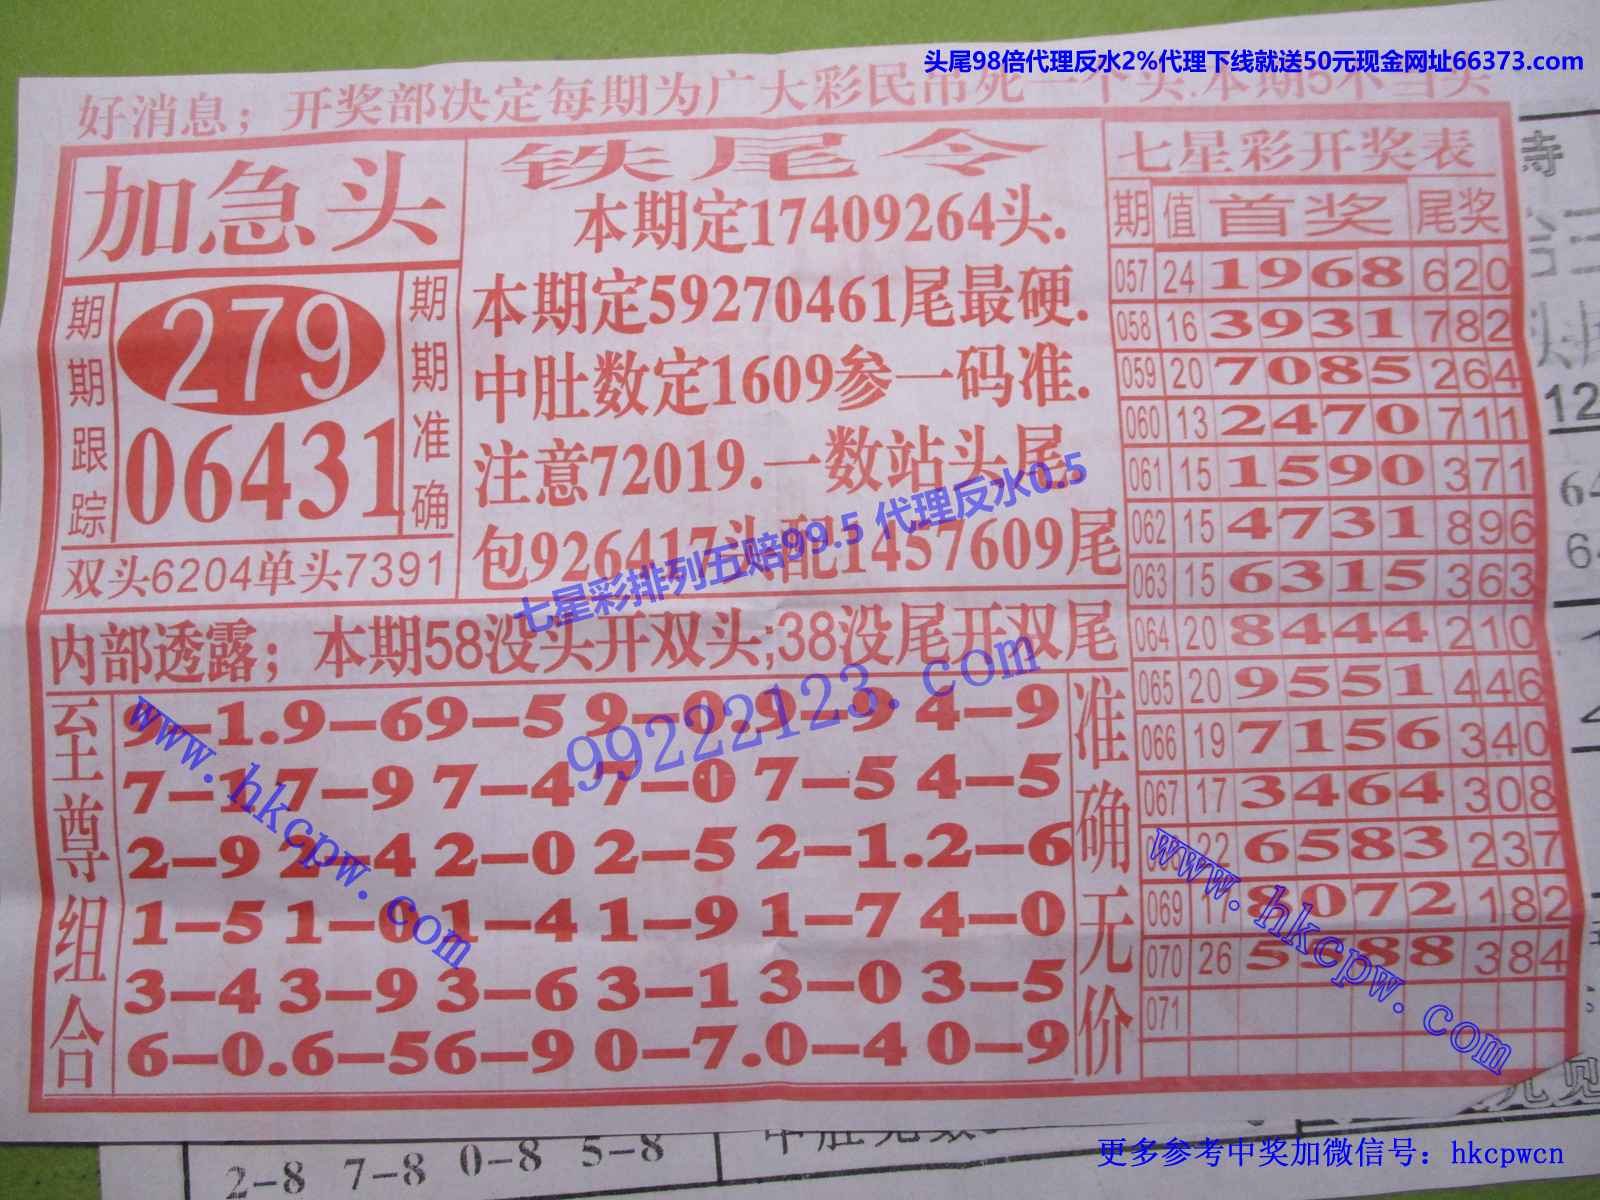 头尾98倍代理反水2%代理下线就送50元现金网址66373.com
好消息；开奖部决定每期为广大彩民吊死一个头.本期5不当头
加急头
期期跟踪
279
06431
期期准确
双头6204单头7391
铁尾令
本期定17409264头.
本期定59270461尾最硬.
中肚数定1609参一码准.
注意72019.一数站头尾
包926417头配1457609尾
七星彩排列五赔99.5 代理反水0.5
内部透露；本期58没头开双头;38没尾开双尾
99222123.com
至尊组合
9-1.9-69-5 9-0.9-9 4-9
7-17-9 7-4 7-0 7-5 4-5
2-9 2-4 2-0 2-5 2-1.2-6
1-5 1-0 1-4 1-9 1-7 4-0
3-4 3-9 3-6 3-1 3-0 3-5
6-0.6-56-9 0-7.0-4 0-9
准确无价
www.hkcpw.com
七星彩开奖表
期 值 首奖 尾奖
057 24 1968 620
058 16 3931 782
059 20 7085 264
060 13 2470 711
061 15 1590 371
062 15 4731 896
063 15 6315 363
064 20 8444 210
065 20 9551 446
066 19 7156 340
067 17 3464 308
22 6583 237
069 17 8072 182
070 26 5588 384
071
www.hkcpw.com
寺
12
64
2-8 7-8 0-8 5-8
更多参考中奖加微信号：hkcpwcn